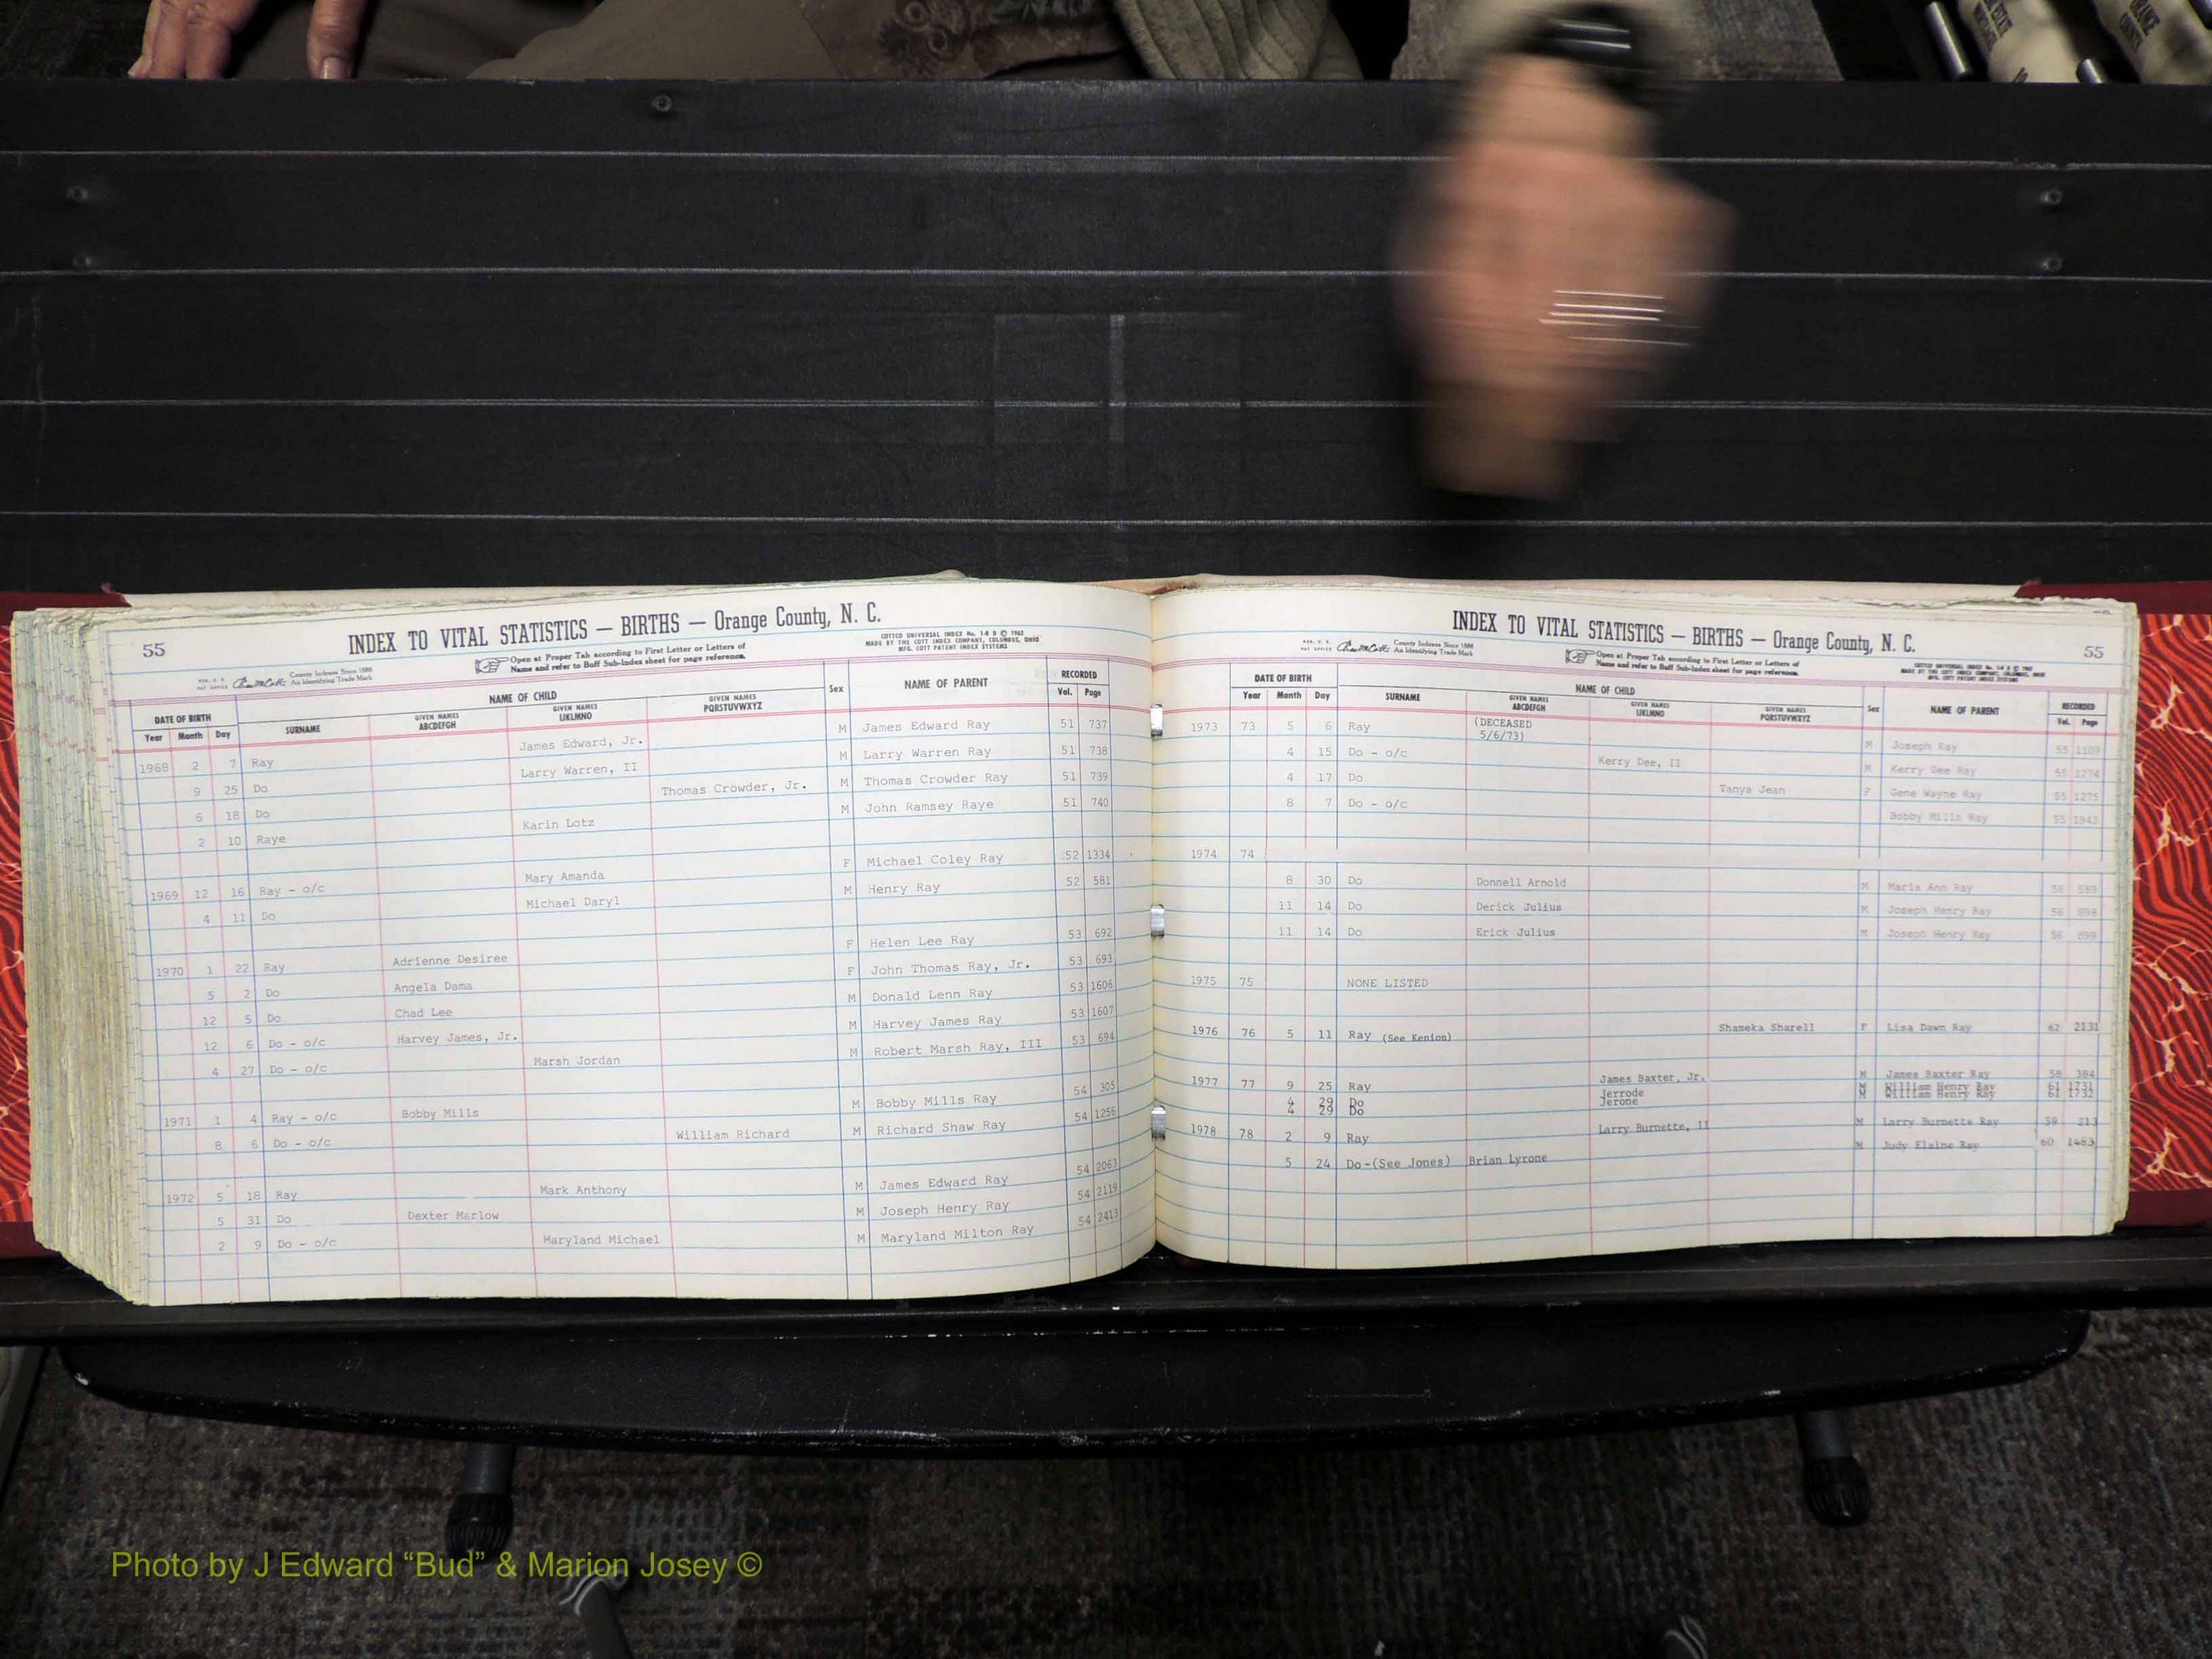 55
INDEX TO VITAL STATISTICS — BIRTHS — Orange County, N. C.
COTTCO UNIVERSAL INDEX No. 1-8 B © 1962
MADE BY THE COTT INDEX COMPANY, COLUMBUS, OHIO
MFG. COTT PATENT INDEX SYSTEMS
County Indexes Since 1888
An Identifying Trade Mark
Open at Proper Tab according to First Letter or Letters of
Name and refer to Buff Sub-Index sheet for page reference.
DATE OF BIRTH NAME OF CHILD Sex NAME OF PARENT RECORDED
Year Month Day SURNAME GIVEN NAMES ABCDEFGH GIVEN NAMES IJKLMNO GIVEN NAMES PQRSTUVWXYZ Vol. Page
1968 2 7 Ray James Edward, Jr. M James Edward Ray 51 737
9 25 Do Larry Warren, II M Larry Warren Ray 51 738
6 18 Do Thomas Crowder, Jr. M Thomas Crowder Ray 51 739
2 10 Raye Karin Lotz M John Ramsey Raye 51 740
1969 12 16 Ray - o/c Mary Amanda F Michael Coley Ray 52 1334
4 11 Do Michael Daryl M Henry Ray 52 581
1970 1 22 Ray Adrienne Desiree F Helen Lee Ray 53 692
5 2 Do Angela Dama F John Thomas Ray, Jr. 53 693
12 5 Do Chad Lee M Donald Lenn Ray 53 1606
12 6 Do - o/c Harvey James, Jr. M Harvey James Ray 53 1607
4 27 Do - o/c Marsh Jordan M Robert Marsh Ray, III 53 694
1971 1 4 Ray - o/c Bobby Mills M Bobby Mills Ray 54 305
8 6 Do - o/c William Richard M Richard Shaw Ray 54 1256
1972 5 18 Ray Mark Anthony M James Edward Ray 54 2063
5 31 Do Dexter Marlow M Joseph Henry Ray 54 2119
2 9 Do - o/c Maryland Michael M Maryland Milton Ray 54 2413
INDEX TO VITAL STATISTICS — BIRTHS — Orange County, N. C.
55
County Indexes Since 1888
An Identifying Trade Mark
Open at Proper Tab according to First Letter or Letters of
Name and refer to Buff Sub-Index sheet for page reference.
DATE OF BIRTH NAME OF CHILD Sex NAME OF PARENT RECORDED
Year Month Day SURNAME GIVEN NAMES ABCDEFGH GIVEN NAMES IJKLMNO GIVEN NAMES PQRSTUVWXYZ Vol. Page
1973 73 5 6 Ray (DECEASED 5/6/73) M Joseph Ray 55 1109
4 15 Do - o/c Kerry Dee, II M Kerry Dee Ray 55 1274
4 17 Do Tanya Jean F Gene Wayne Ray 55 1275
8 7 Do - o/c Bobby Mills Ray 55 1943
1974 74
8 30 Do Donnell Arnold M Marla Ann Ray 56 589
11 14 Do Derick Julius M Joseph Henry Ray 56 898
11 14 Do Erick Julius M Joseph Henry Ray 56 899
1975 75 NONE LISTED
1976 76 5 11 Ray (See Kenion) Shameka Sharell F Lisa Dawn Ray 62 2131
1977 77 9 25 Ray James Baxter, Jr. M James Baxter Ray 58 384
4 29 Do Jerrode M William Henry Ray 61 1731
4 29 Do Jerone M William Henry Ray 61 1732
1978 78 2 9 Ray Larry Burnette, II M Larry Burnette Ray 59 213
5 24 Do-(See Jones) Brian Lyrone M Judy Elaine Ray 60 1463
Photo by J Edward “Bud” & Marion Josey ©